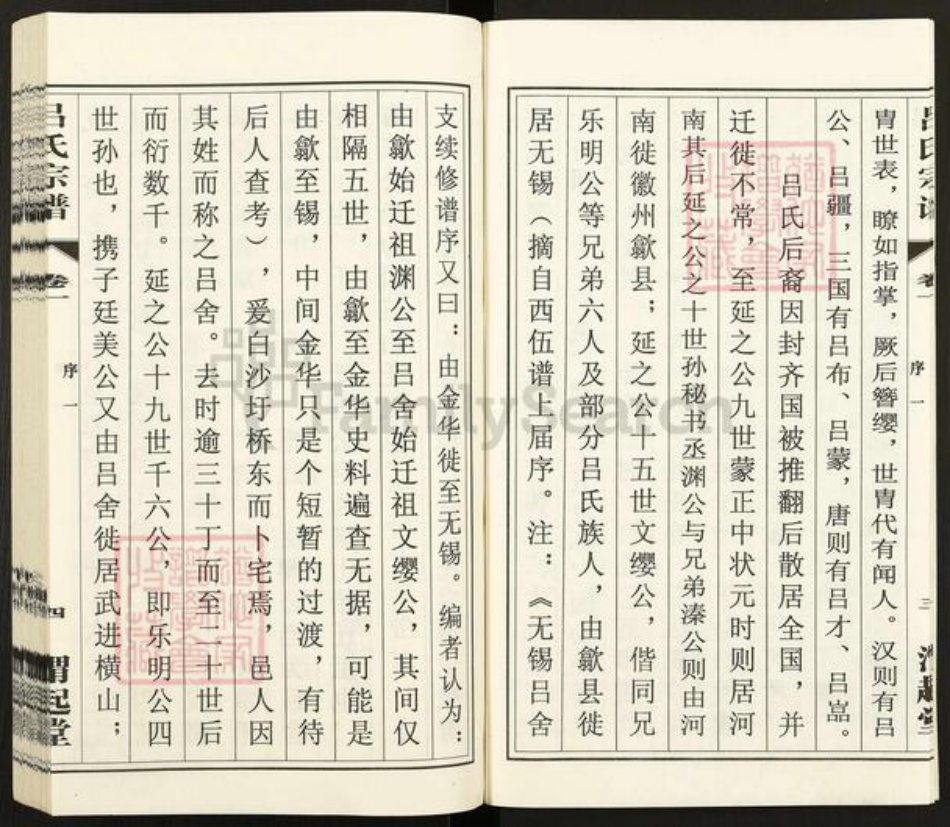 胄世表，瞭如指掌，厥后簪缨，世胄代有闻人。汉则有吕
公、吕疆，三国有吕布、吕蒙，唐则有吕才、吕嵓。
吕氏后裔因封齐国被推翻后散居全国，并
迁徙不常，至延之公九世蒙正中状元时则居河
南其后延之公之十世孙秘书丞渊公与兄弟溱公则由河
南徙徽州歙县；延之公十五世文缨公，偕同兄
乐明公等兄弟六人及部分吕氏族人，由歙县徙
居无锡（摘自西伍谱上届序。注：《无锡吕舍
吕氏宗谱
卷一
序一
支续修谱序又曰：由金华徙至无锡。编者认为：
由歙始迁祖渊公至吕舍始迁祖文缨公，其间仅
相隔五世，由歙至金华史料遍查无据，可能是
由歙至锡，中间金华只是个短暂的过渡，有待
后人查考），爰白沙圩桥东而卜宅焉，邑人因
其姓而称之吕舍。去时逾三十丁而至二十世后
而衍数千。延之公十九世千六公，即乐明公四
世孙也，携子廷美公又由吕舍徙居武进横山；
吕氏宗谱
卷一
序一
四
渭起堂
FamilySearch